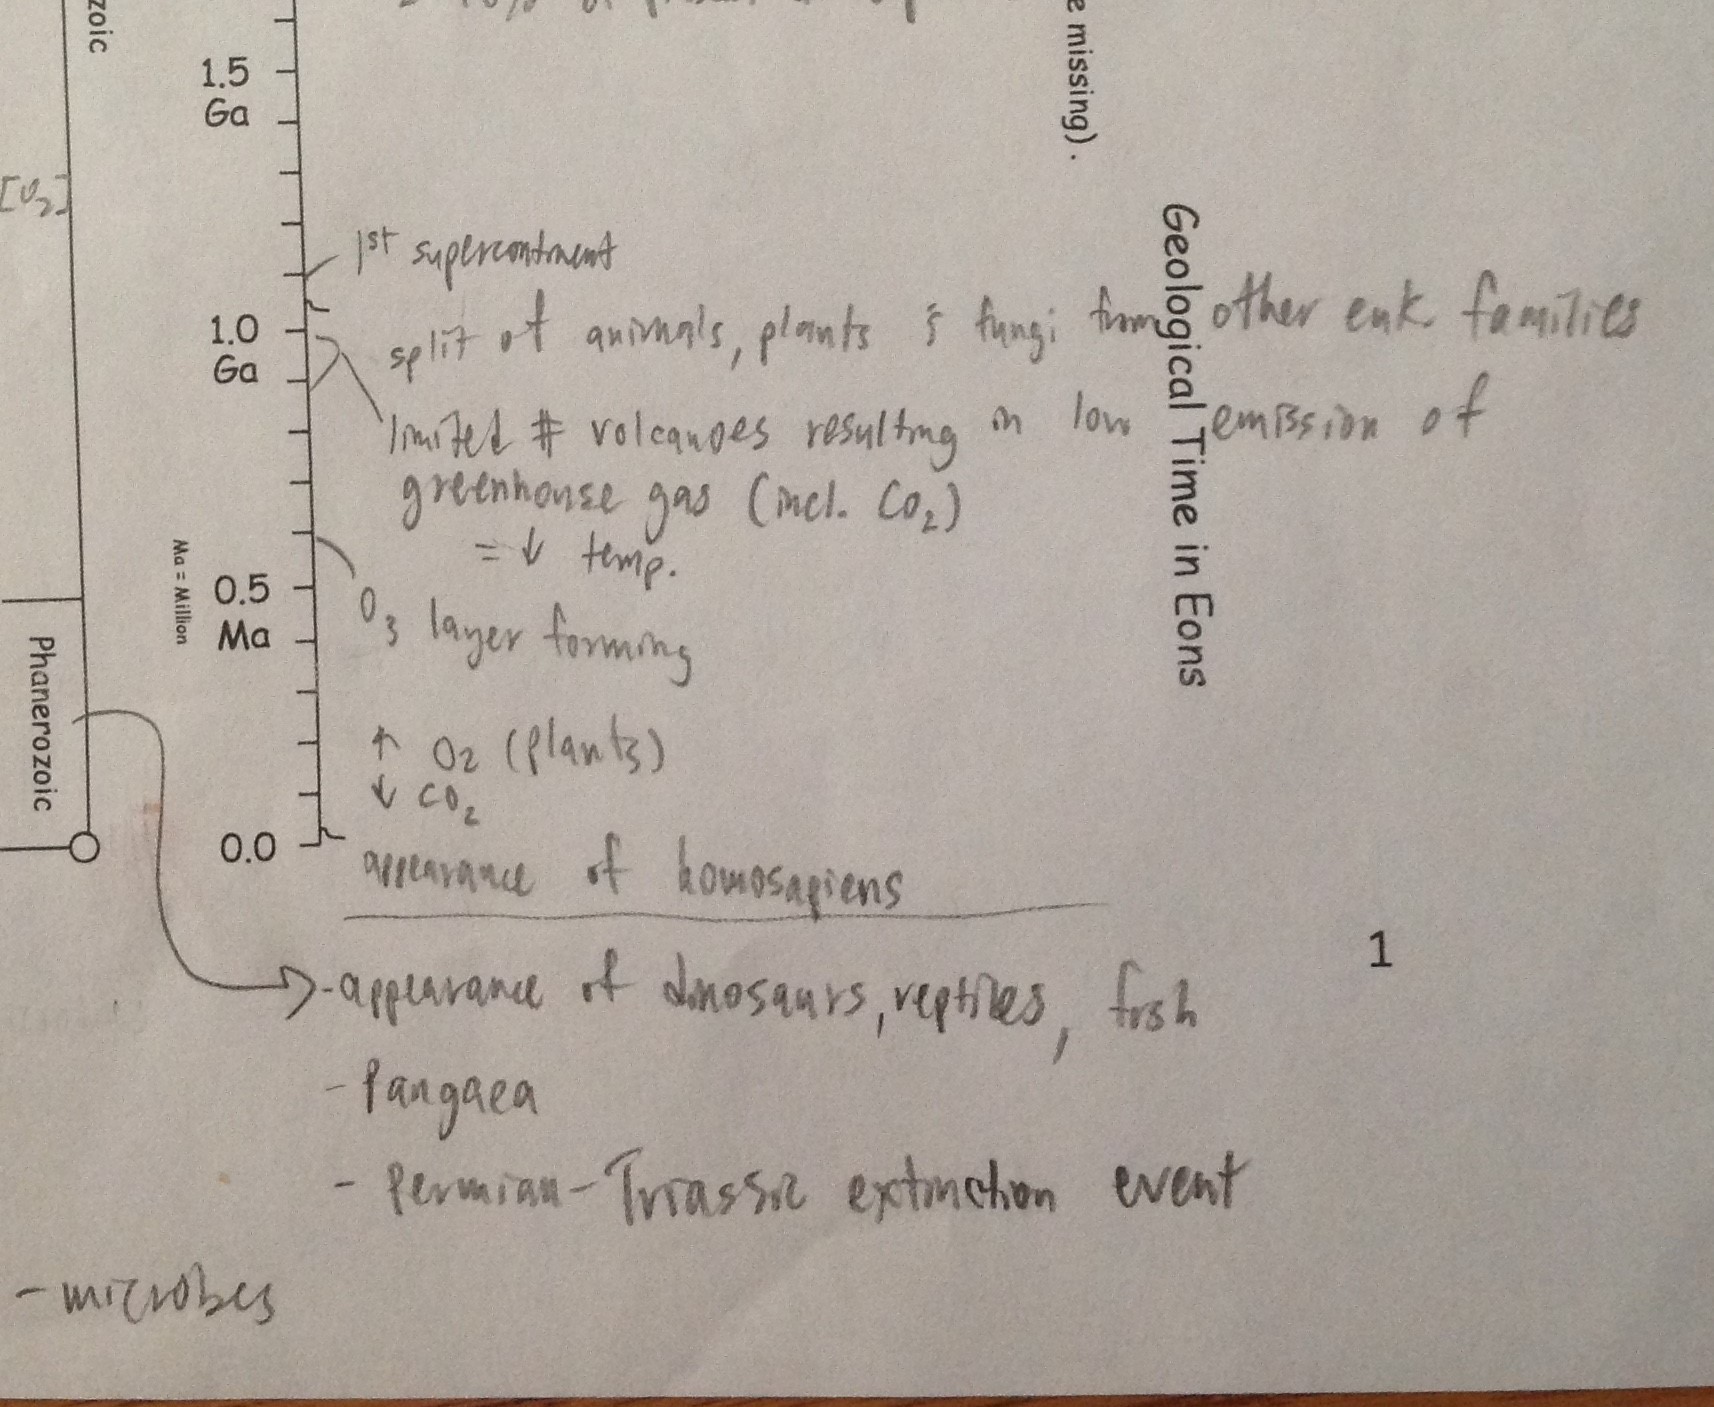 zoic
e missing).
1.5
Ga
[O2]
1st supercontinent
1.0
Ga
split of animals, plants & fungi from other euk. families
limited # volcanoes resulting in low emission of
greenhouse gas (incl. CO2)
= ↓ temp.
Geological Time in Eons
Ma = Million
0.5
Ma
O3 layer forming
Phanerozoic
↑ O2 (plants)
↓ CO2
0.0
appearance of homosapiens
1
- appearance of dinosaurs, reptiles, fish
- Pangaea
- Permian-Triassic extinction event
- microbes